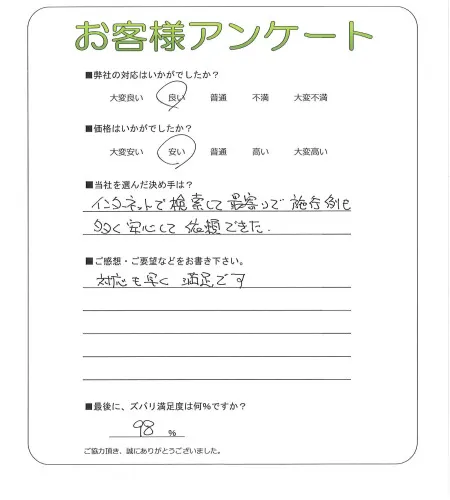 お客様アンケート
■弊社の対応はいかがでしたか?
大変良い 良い 普通 不満 大変不満
■価格はいかがでしたか?
大変安い 安い 普通 高い 大変高い
■当社を選んだ決め手は?
インターネットで検索して最寄りで施行例も
多く安心して依頼できた.
■ご感想・ご要望などをお書き下さい。
対応も早く 満足です
■最後に、ズバリ満足度は何%ですか?
98 %
ご協力頂き、誠にありがとうございました。